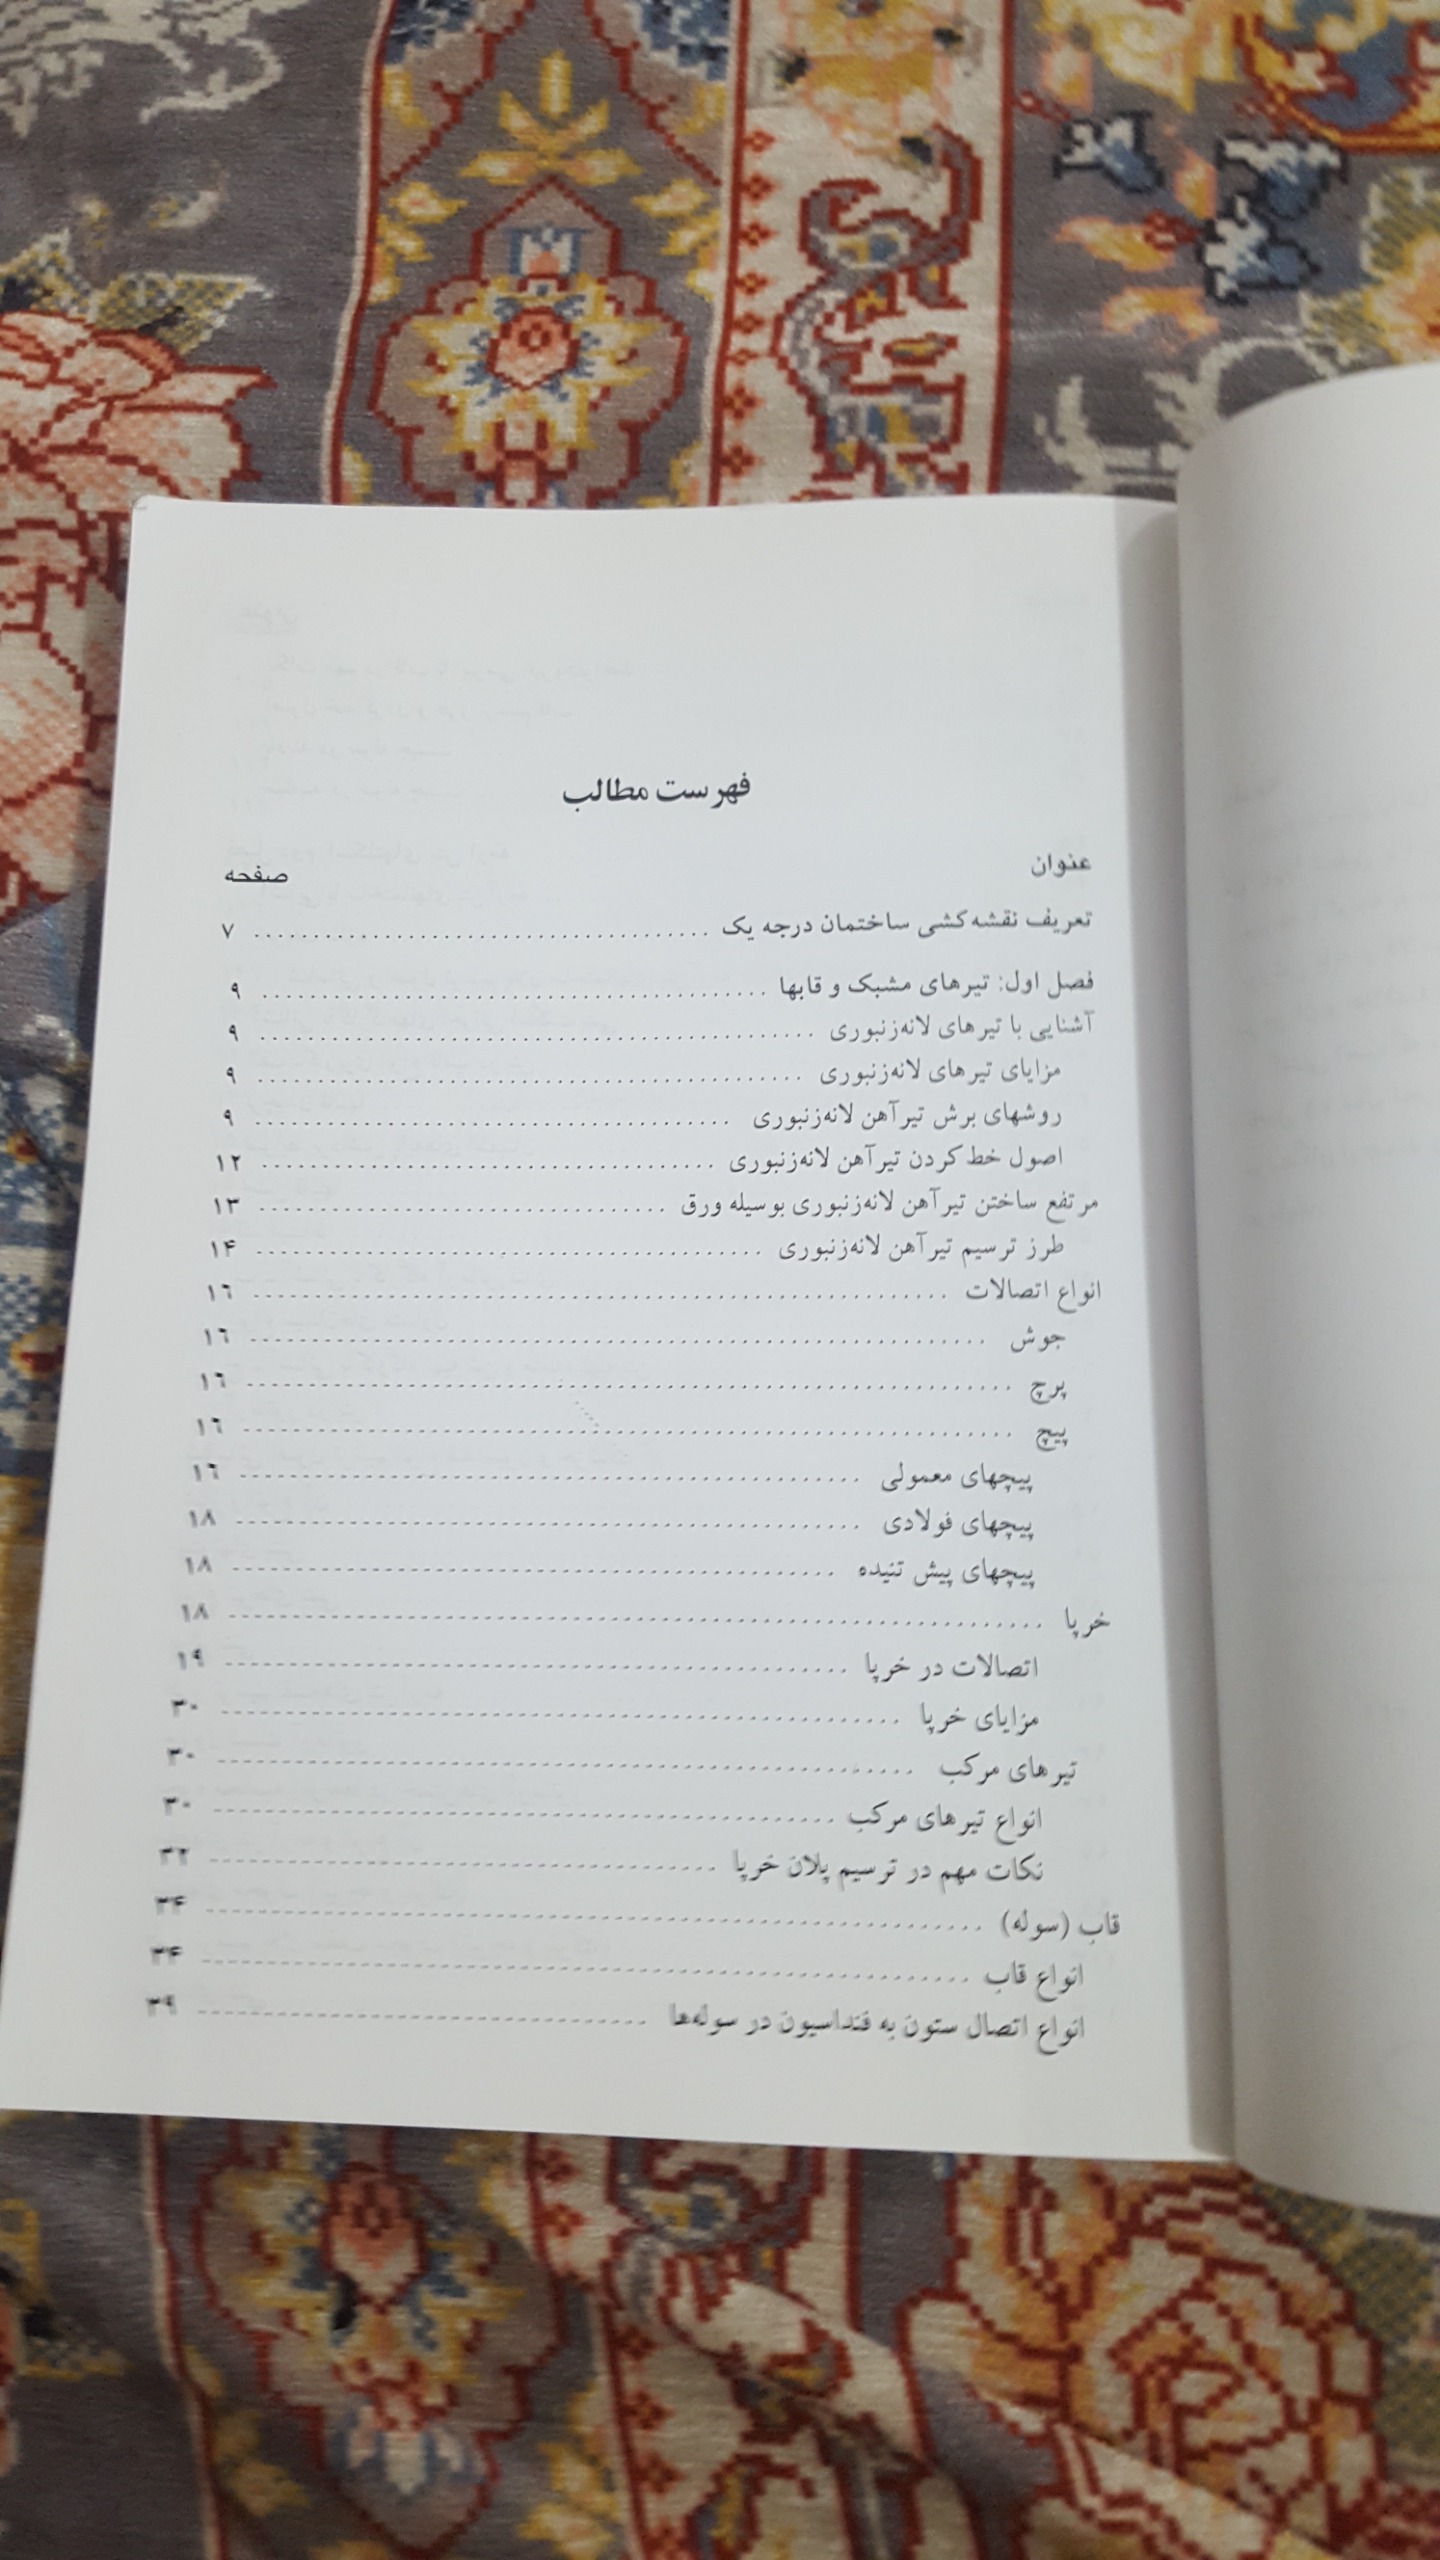 فهرست مطالب
عنوان صفحه
تعریف نقشه‌کشی ساختمان درجه یک ........ ۷
فصل اول: تیرهای مشبک و قابها ........ ۹
آشنایی با تیرهای لانه‌زنبوری ........ ۹
مزایای تیرهای لانه‌زنبوری ........ ۹
روشهای برش تیرآهن لانه‌زنبوری ........ ۹
اصول خط کردن تیرآهن لانه‌زنبوری ........ ۱۲
مرتفع ساختن تیرآهن لانه‌زنبوری بوسیله ورق ........ ۱۳
طرز ترسیم تیرآهن لانه‌زنبوری ........ ۱۴
انواع اتصالات ........ ۱۶
جوش ........ ۱۶
پرچ ........ ۱۶
پیچ ........ ۱۶
پیچهای معمولی ........ ۱۶
پیچهای فولادی ........ ۱۸
پیچهای پیش تنیده ........ ۱۸
خرپا ........ ۱۸
اتصالات در خرپا ........ ۱۹
مزایای خرپا ........ ۳۰
تیرهای مرکب ........ ۳۰
انواع تیرهای مرکب ........ ۳۰
نکات مهم در ترسیم پلان خرپا ........ ۳۲
قاب (سوله) ........ ۳۴
انواع قاب ........ ۳۴
انواع اتصال ستون به فنداسیون در سوله‌ها ........ ۳۹